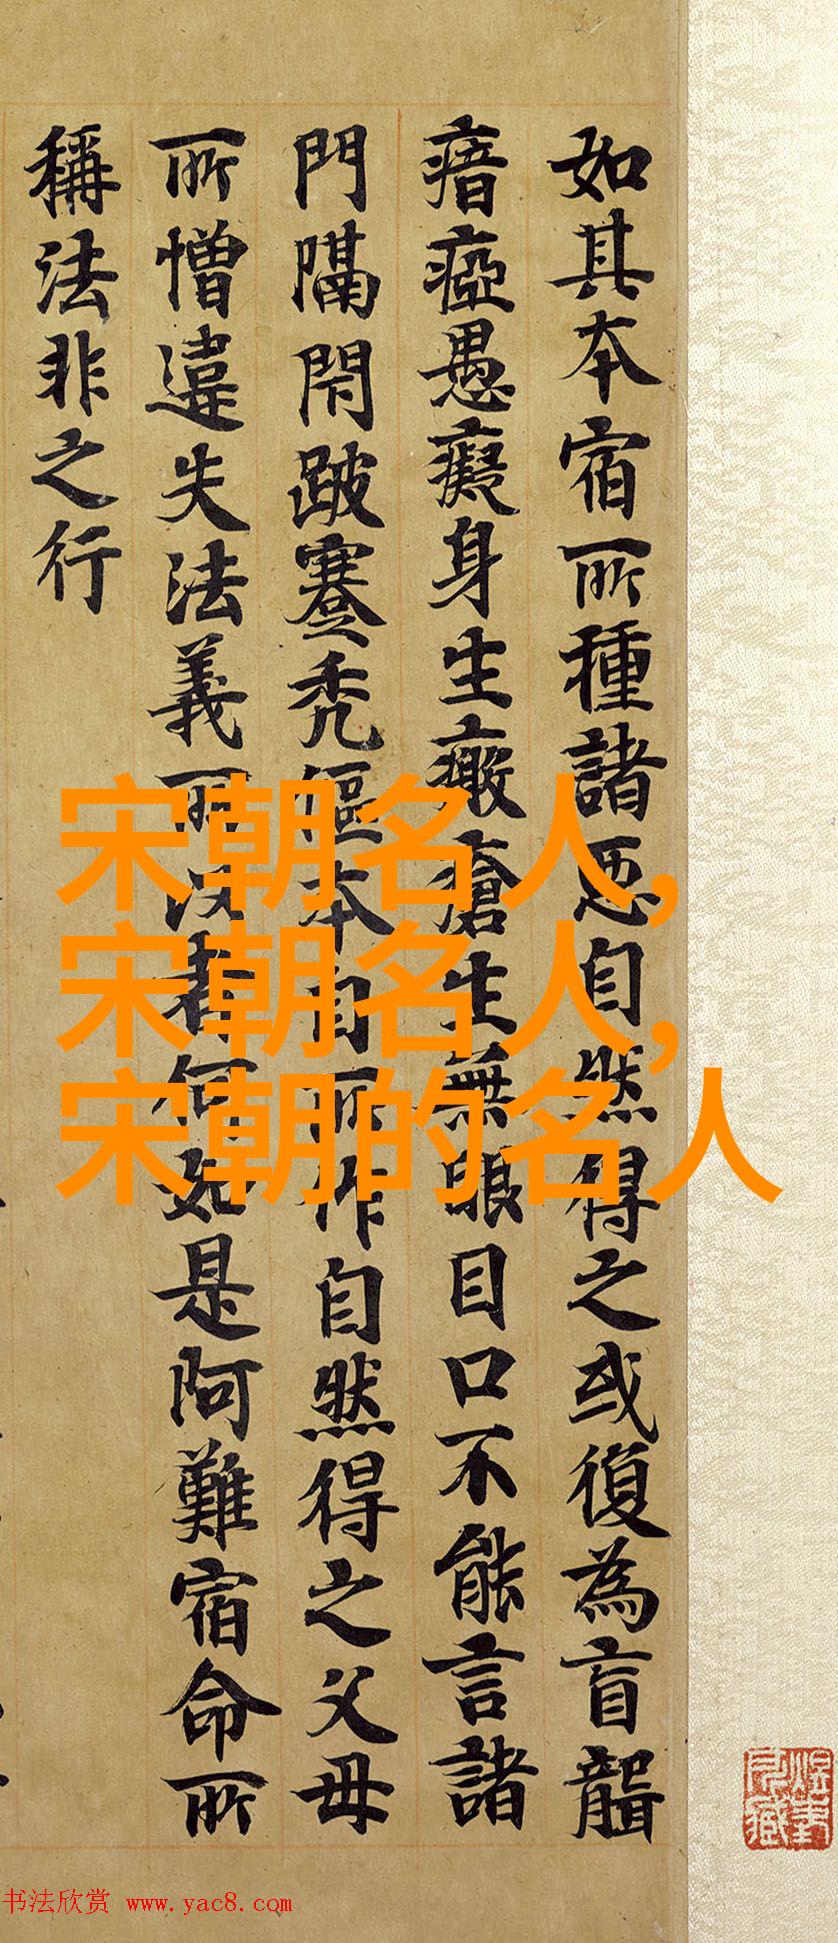 如其本宿所種諸惡自然得之或復為盲聾
瘖瘂愚癡身生癥瘡生無眼目口不能言諸
門隔閉跛蹇禿傴本自所作自然得之父母
所憎違失法義所以者何如是阿難宿命所
稱法非之行
宋朝名人,
宋朝名人,
宋朝的名人
书法欣赏 www.yac8.com